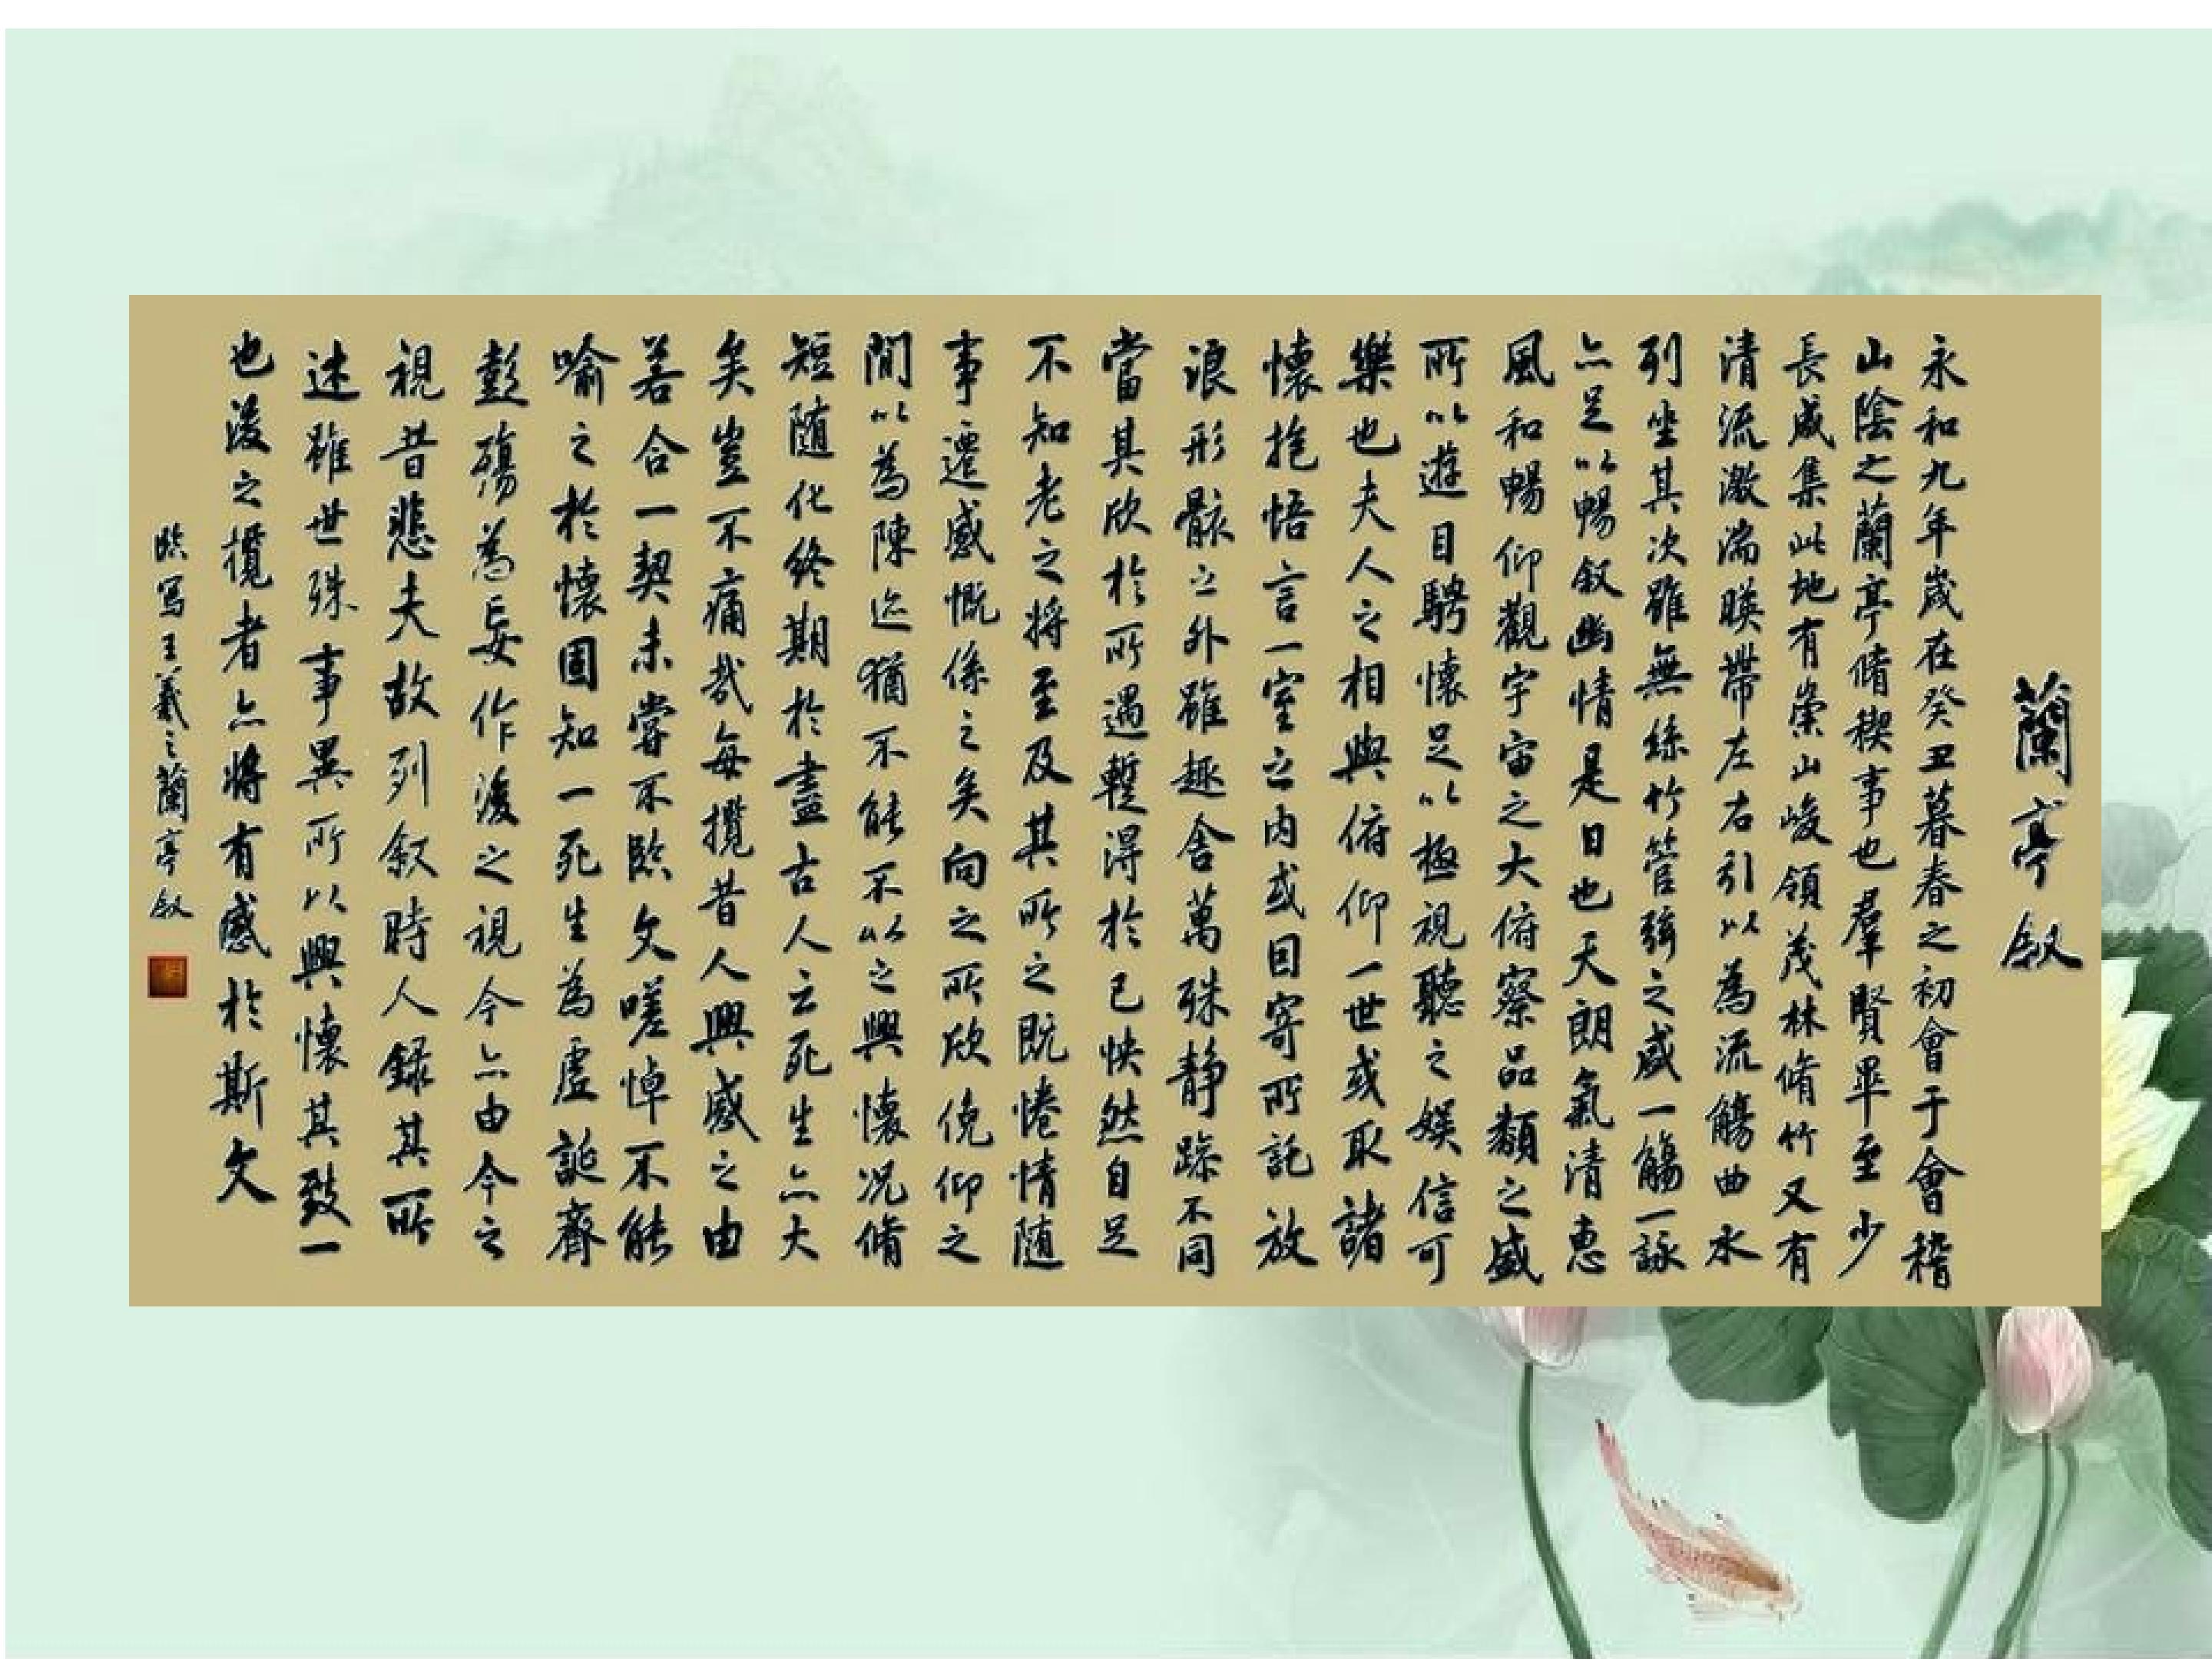 蘭亭叙
永和九年歲在癸丑暮春之初會于會稽
山陰之蘭亭脩稧事也羣賢畢至少
長咸集此地有崇山峻領茂林脩竹又有
清流激湍暎帶左右引以為流觴曲水
列坐其次雖無絲竹管弦之盛一觴一詠
亦足以暢叙幽情是日也天朗氣清惠
風和暢仰觀宇宙之大俯察品類之盛
所以遊目騁懷足以極視聽之娛信可
樂也夫人之相與俯仰一世或取諸
懷抱悟言一室之內或因寄所託放
浪形骸之外雖趣舍萬殊静躁不同
當其欣於所遇暫得於己怏然自足
不知老之将至及其所之既惓情隨
事遷感慨係之矣向之所欣俛仰之
閒以為陳迹猶不能不以之興懷況脩
短隨化終期於盡古人云死生亦大
矣豈不痛哉每攬昔人興感之由
若合一契未嘗不臨文嗟悼不能
喻之於懷固知一死生為虛誕齊
彭殤為妄作後之視今亦由今之
視昔悲夫故列叙時人録其所
述雖世殊事異所以興懷其致一
也後之攬者亦将有感於斯文
臨写王羲之蘭亭叙